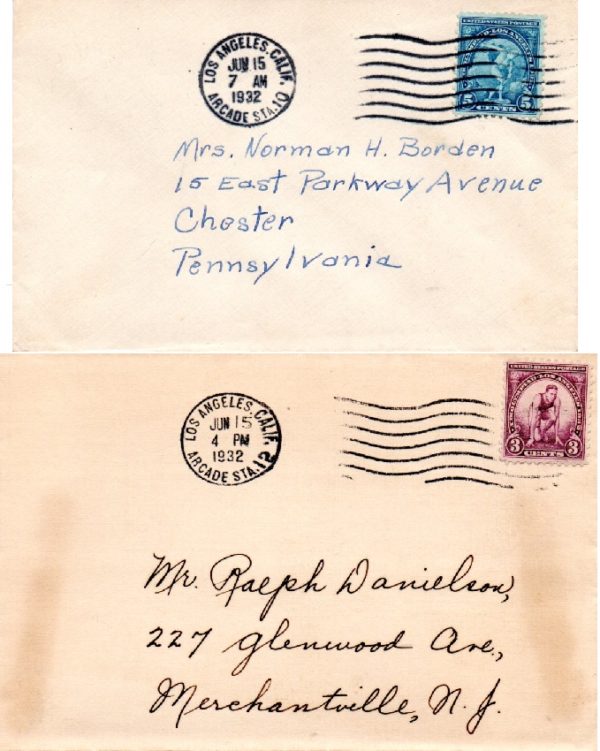 LOS ANGELES, CALIF.
JUN 15
7 AM
1932
ARCADE STA. 10
UNITED STATES POSTAGE
LOS ANGELES
5 CENTS 5
Mrs. Norman H. Borden
15 East Parkway Avenue
Chester
Pennsylvania
LOS ANGELES, CALIF.
JUN 15
4 PM
1932
ARCADE STA. 12
UNITED STATES POSTAGE
LOS ANGELES
3 CENTS 3
Mr. Ralph Danielson,
227 Glenwood Ave.,
Merchantville, N. J.